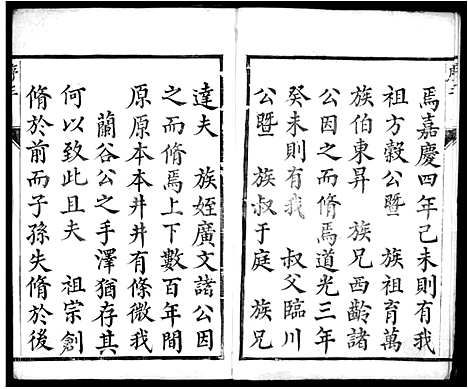 焉嘉慶四年己未則有我
祖方穀公暨　族祖育萬
族伯東昇　族兄西齡諸
公因之而脩焉道光三年
癸未則有我　叔父臨川
公暨　族叔于庭　族兄
達夫　族姪廣文諸公因
之而脩焉上下數百年間
原原本本井井有條微我
蘭谷公之手澤猶存其
何以致此且夫　祖宗創
脩於前而子孫失脩於後